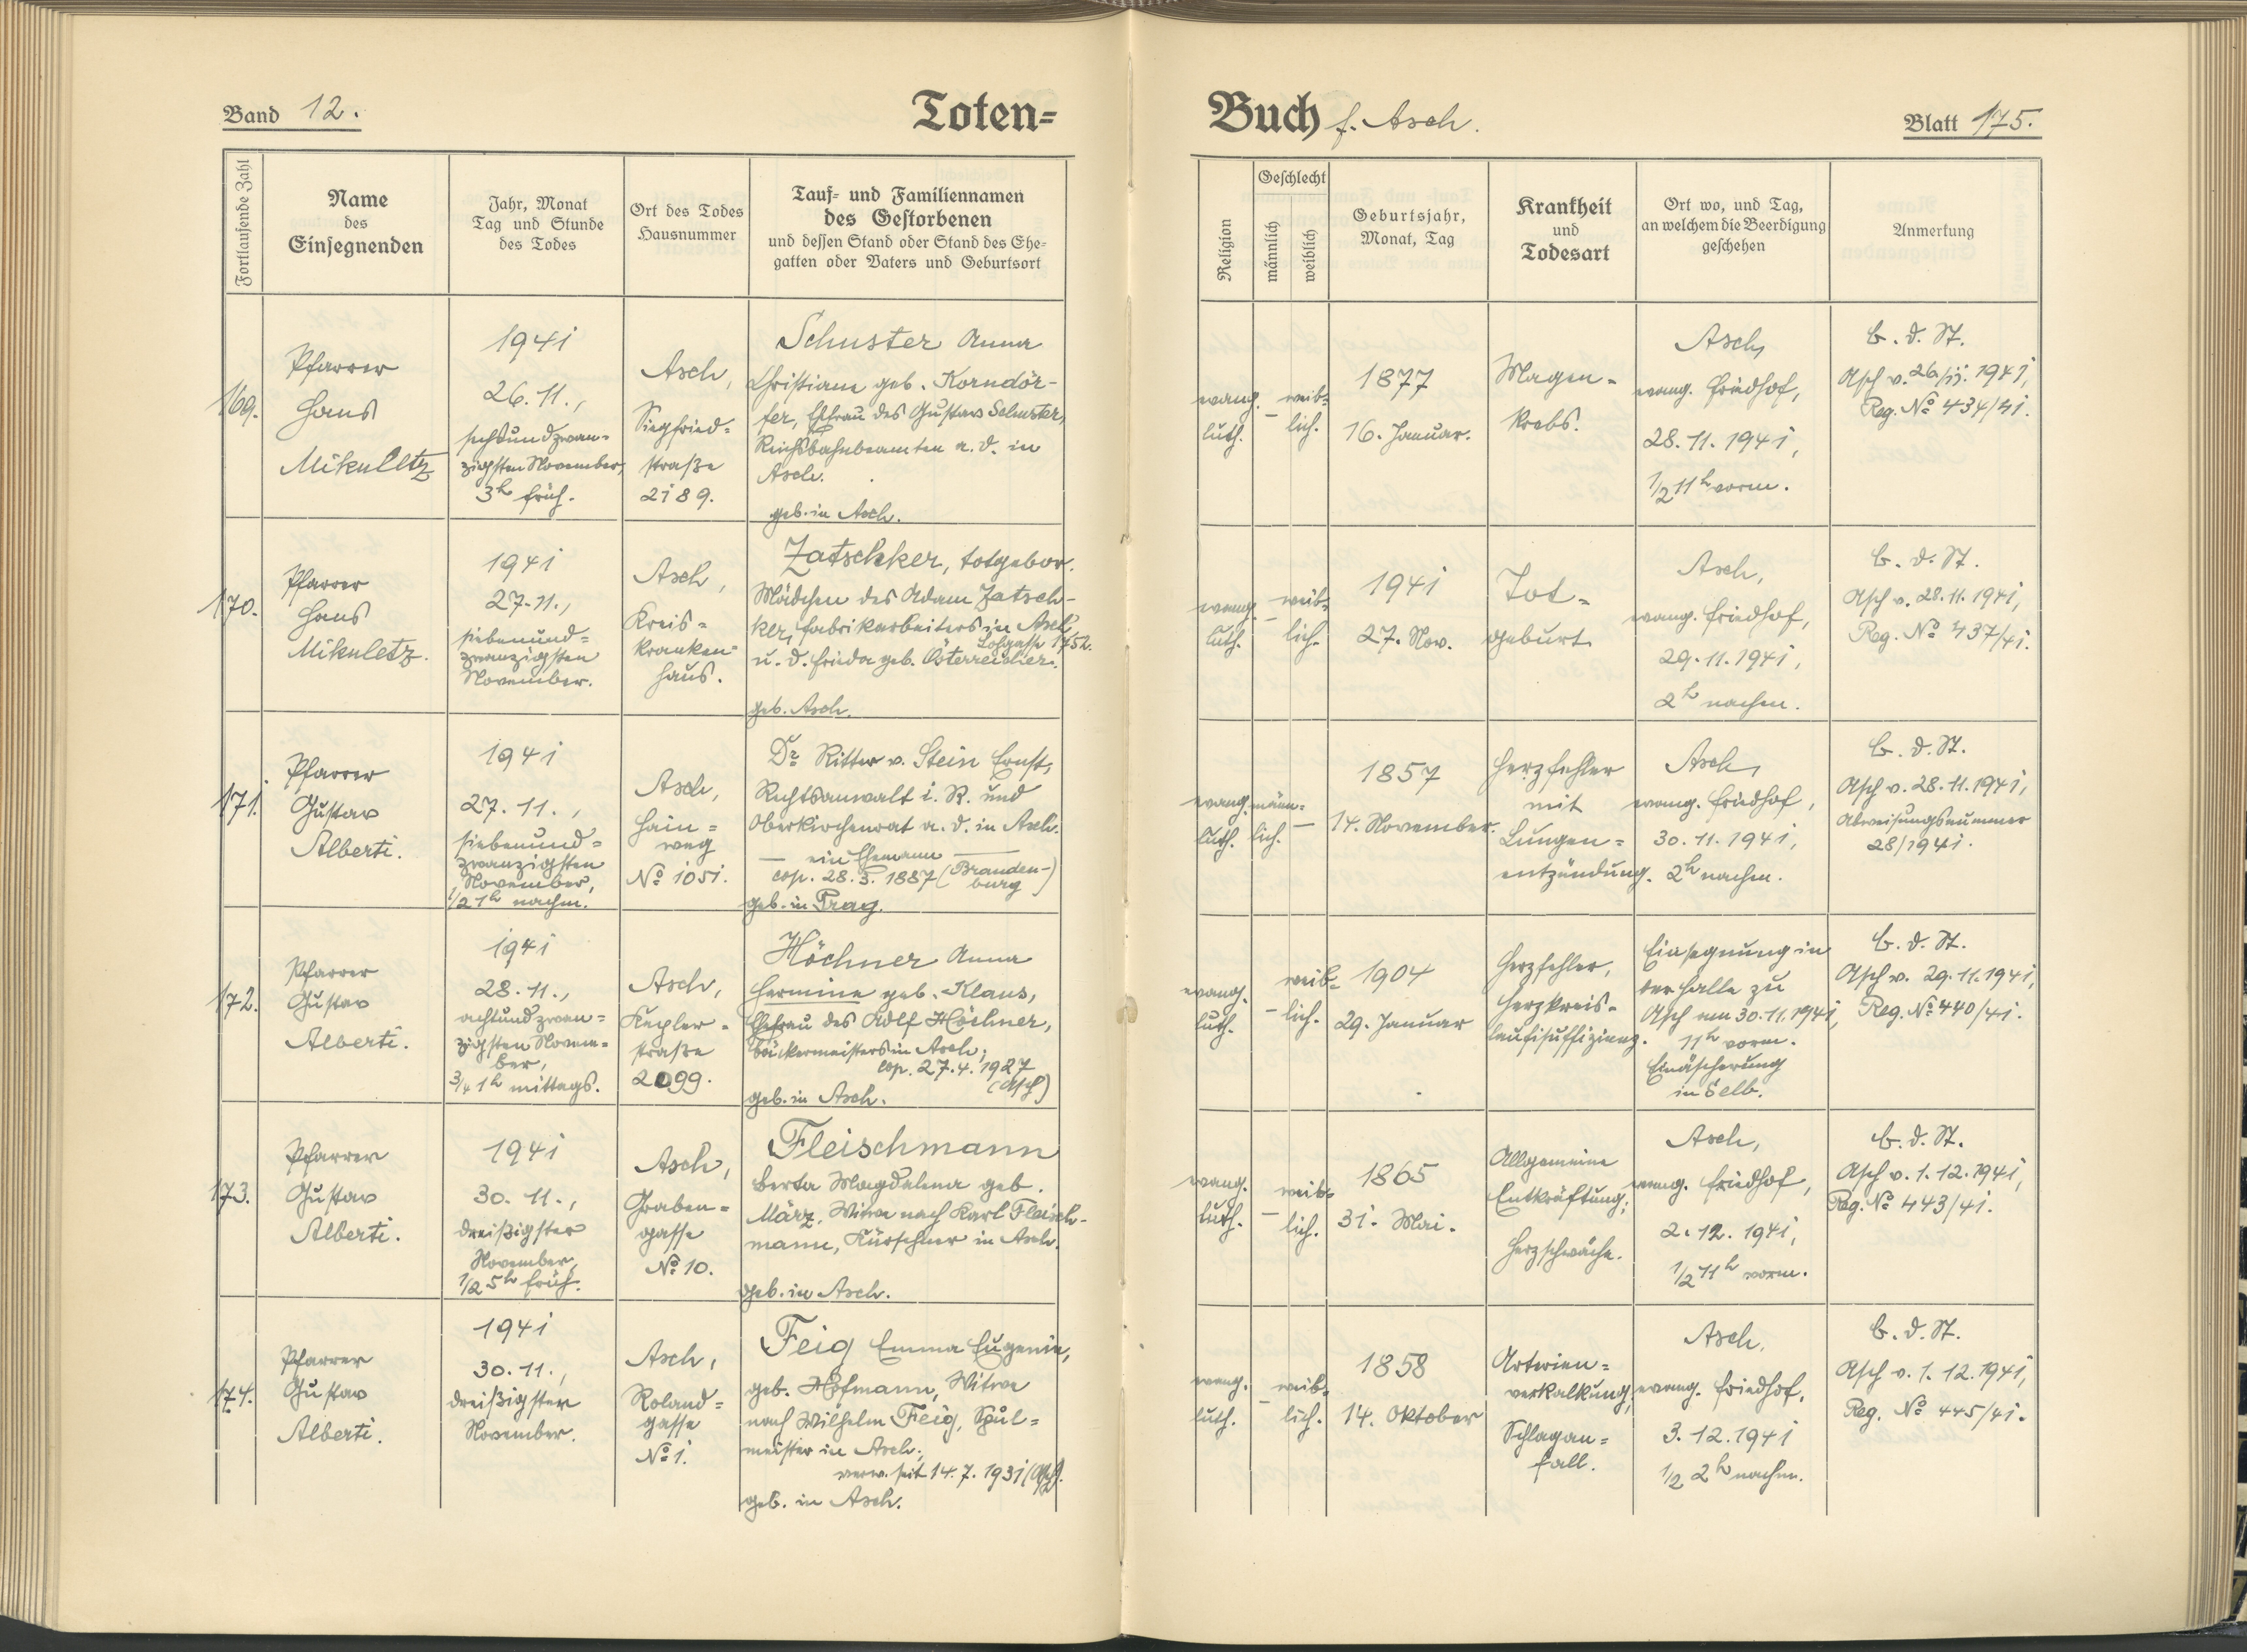 Band 12.
Toten=
Buch f. Asch.
Blatt 175.
Fortlaufende Zahl
Name
des
Einsegnenden
Jahr, Monat
Tag und Stunde
des Todes
Ort des Todes
Hausnummer
Tauf= und Familiennamen
des Gestorbenen
und dessen Stand oder Stand des Ehe=
gatten oder Vaters und Geburtsort
Religion
Geschlecht
männlich
weiblich
Geburtsjahr,
Monat, Tag
Krankheit
und
Todesart
Ort wo, und Tag,
an welchem die Beerdigung
geschehen
Anmerkung
169.
Pfarrer
Hans
Mikuletz
1941
26.11.,
sechsundzwan=
zigsten November,
3h früh.
Asch,
Siegfried=
straße
2189.
Schuster Anna
Christiane geb. Korndör-
fer, Ehfrau des Gustav Schuster,
Reichsbahnbeamten a. D. in
Asch.
geb. in Asch.
evang.
luth.
–
weib=
lich.
1877
16. Januar.
Magen=
krebs.
Asch,
evang. Friedhof,
28.11.1941,
1/2 11h vorm.
B. d. St.
Asch v. 26/11. 1941,
Reg. No 434/41.
170.
Pfarrer
Hans
Mikuletz.
1941
27.11.,
siebenund=
zwanzigsten
November.
Asch,
Kreis=
kranken=
haus.
Zatschker, totgebor.
Mädchen des Adam Zatsch-
ker, Fabrikarbeiters in Asch,
Lohgasse 1752.
u. d. Frieda geb. Österreicher.
geb. Asch.
evang.
luth.
–
weib=
lich.
1941
27. Nov.
Tot=
geburt
Asch,
evang. Friedhof,
29.11.1941,
2h nachm.
B. d. St.
Asch v. 28.11.1941,
Reg. No 437/41.
171.
Pfarrer
Gustav
Alberti.
1941
27.11.,
siebenund=
zwanzigsten
November,
1/2 1h nachm.
Asch,
Hain=
weg
No 1051.
Dr Ritter v. Stein Ernst,
Rechtsanwalt i. R. und
Oberkirchenrat a. D. in Asch.
— ein Ehemann —
cop. 28.3.1887 (Branden-
burg)
geb. in Prag.
evang.
luth.
männ=
lich.
–
1857
14. November.
Herzfehler
mit
Lungen=
entzündung.
Asch,
evang. Friedhof,
30.11.1941,
2h nachm.
B. d. St.
Asch v. 28.11.1941,
Abweisungsnummer
28/1941.
172.
Pfarrer
Gustav
Alberti.
1941
28.11.,
achtundzwan=
zigsten Novem=
ber,
3/4 1h mittags.
Asch,
Kepler=
straße
2099.
Höchner Anna
Hermine geb. Klaus,
Ehefrau des Adlf Höchner,
Bäckermeisters in Asch;
cop. 27.4.1927
(Asch)
geb. in Asch.
evang.
luth.
–
weib=
lich.
1904
29. Januar
Herzfehler,
Herzkreis=
laufisuffizienz.
Einsegnung in
der Halle zu
Asch am 30.11.1941,
11h vorm.
Einäscherung
in Selb.
B. d. St.
Asch v. 29.11.1941,
Reg. No 440/41.
173.
Pfarrer
Gustav
Alberti.
1941
30.11.,
dreißigster
November,
1/2 5h früh.
Asch,
Graben=
gasse
No 10.
Fleischmann
Berta Magdalena geb.
März, Witwe nach Karl Fleisch-
mann, Kürschner in Asch.
geb. in Asch.
evang.
luth.
–
weib=
lich.
1865
31. Mai.
Allgemeine
Entkräftung;
Herzschwäche.
Asch,
evang. Friedhof,
2.12.1941,
1/2 11h vorm.
B. d. St.
Asch v. 1.12.1941,
Reg. No 443/41.
174.
Pfarrer
Gustav
Alberti.
1941
30.11.,
dreißigster
November.
Asch,
Roland=
gasse
No 1.
Feig Emma Eugenie,
geb. Hofmann, Witwe
nach Wilhelm Feig, Spul=
meister in Asch;
verw. seit 14.7.1931 (Asch).
geb. in Asch.
evang.
luth.
–
weib=
lich.
1858
14. Oktober
Arterien=
verkalkung,
Schlagan=
fall.
Asch,
evang. Friedhof,
3.12.1941
1/2 2h nachm.
B. d. St.
Asch v. 1.12.1941,
Reg. No 445/41.